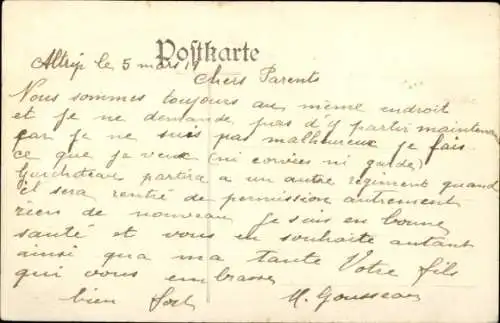 Postkarte
Altrip le 5 mars 19
Chers Parents
Nous sommes toujours au même endroit
et je ne demande pas d'y partir maintenan
car je ne suis pas malheureux je fais
ce que je veux (ni corvées ni garde)
partira a un autre régiment quand
il sera rentré de permission autrement
rien de nouveau je suis en bonne
santé et vous en souhaite autant
ainsi qua ma tante Votre fils
qui vous embrasse
bien fort M. Gousseau